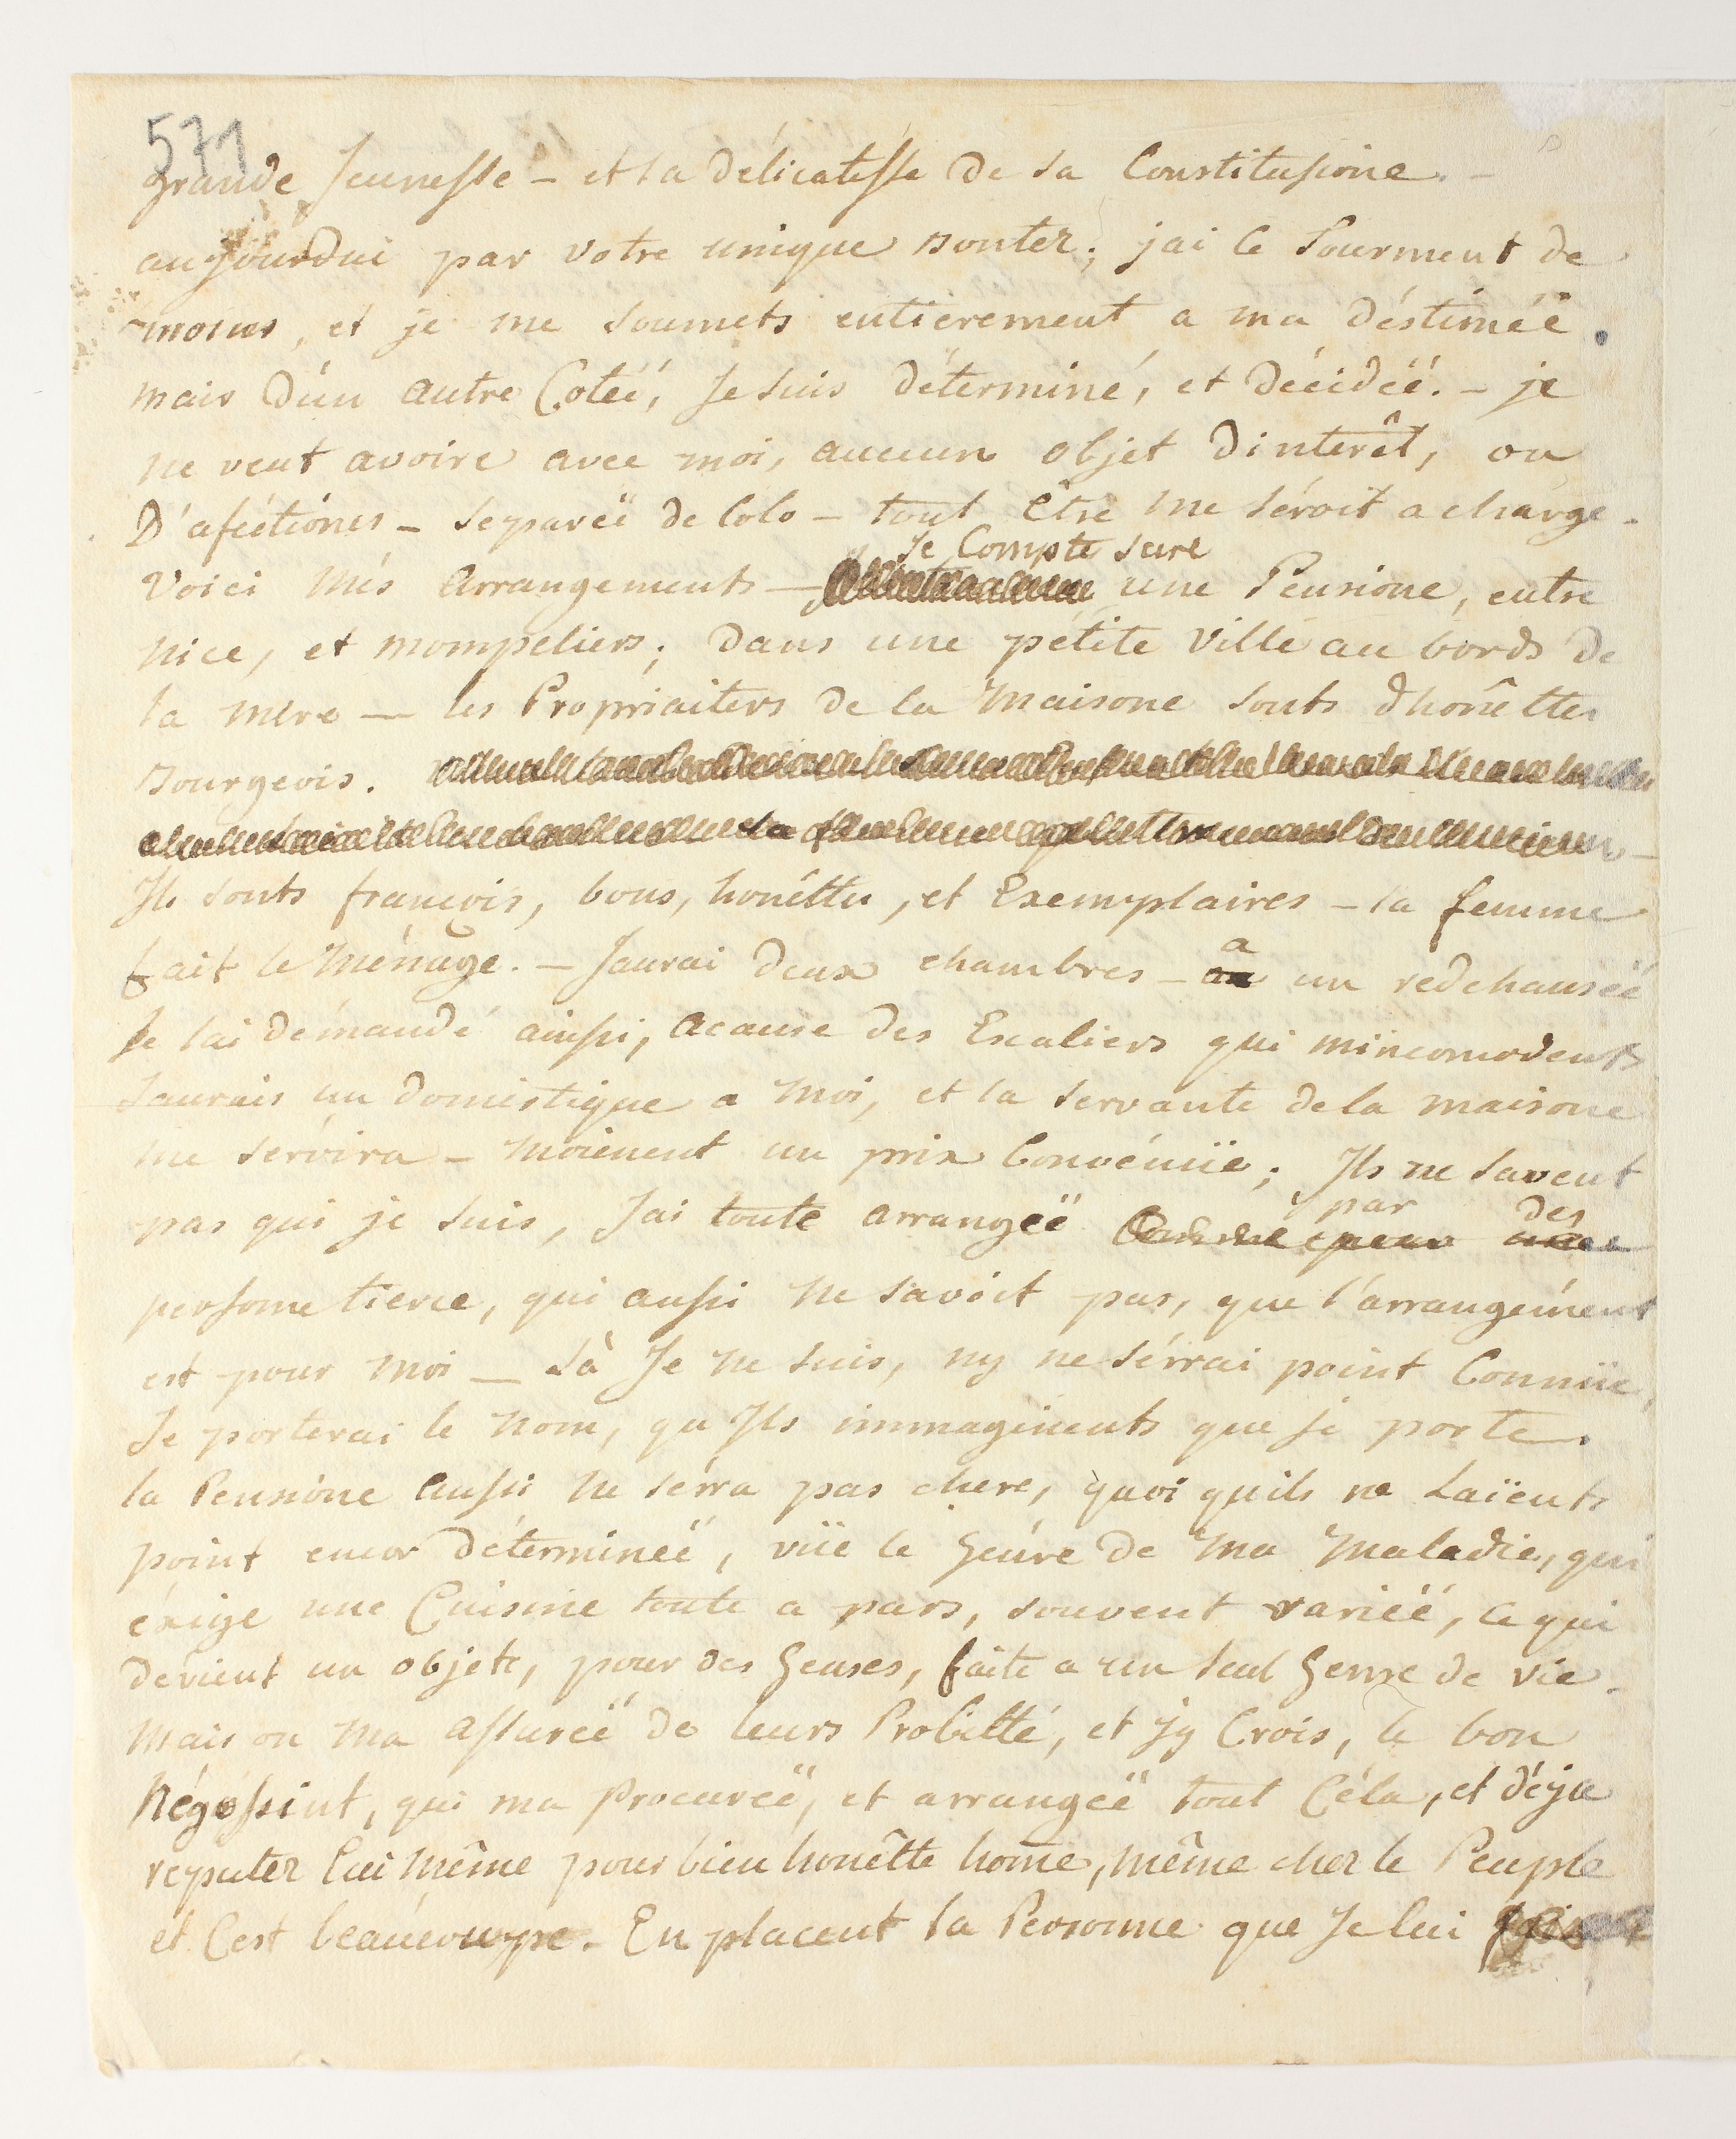 571
grande Jeunesse - et la délicatesse de sa Constitusione. -
aujourdui par votre unique Bonter; jai ce Tourment de
moins, et je me soumets entierement a ma déstinéë.
mais d'un autre Cotéé, Je suis déterminé, et décidéé. - je
ne veut avoire avec moi, aucun objet d'interêt, ou
D'afectiones - separéë de Lolo - tout Etre me séroit a charge.
Je Compte sure
Voici Més Arrangements - une Pensione, entre
Nice, et mompeliers; dans une pétite Ville au bords de
la mere - les Propriaiters de la Maisone sonts d'honêttes
Bourgeois.
Ils sonts francois, bons, honêttes, et Exemplaires - la femme
fait le Ménage. - Jaurai deux chambres - a un redchauséé
Je lai démandé ainssi, acause des Escaliers qui mincomodents
Jaurais un doméstique a Moi, et la servante de la maisone
me sérvira - Moienent un prix Convénüe; Ils ne savent
pas qui je suis, Jai toute arrangéë par des
personne tierce, qui aussi ne savoit pas, que l'arrangément
est pour Moi - Là Je ne suis, ny ne sérrai point Connüe,
Je porterai le Nom, qu Ils immaginents que je porte.
la Pensione aussi ne sérra pas chere, quoi quils ne Laïents
point encor détermineé, vüe le Genre de Ma Maladie, qui
éxige une Cuisine toute a pars, souvent variéé, ce qui
dévient un objete, pour des Genses, faite a un seul Genre de vie.
Mais on Ma assuréë de leurs Probitté, et Jy Crois, le bon
Négossint, qui ma Procuréë, et arrangéë tout Céla, et déja
reputer Lui Même pour bien honêtte home, même chez le Peuple
et Cest beaucoupe. En placent la Personne que Je lui